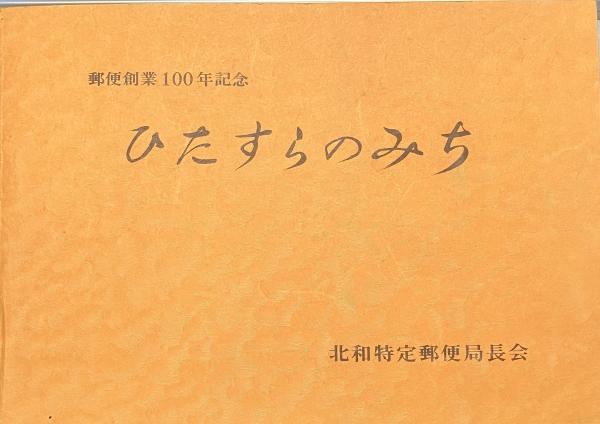 郵便創業100年記念
ひたすらのみち
北和特定郵便局長会